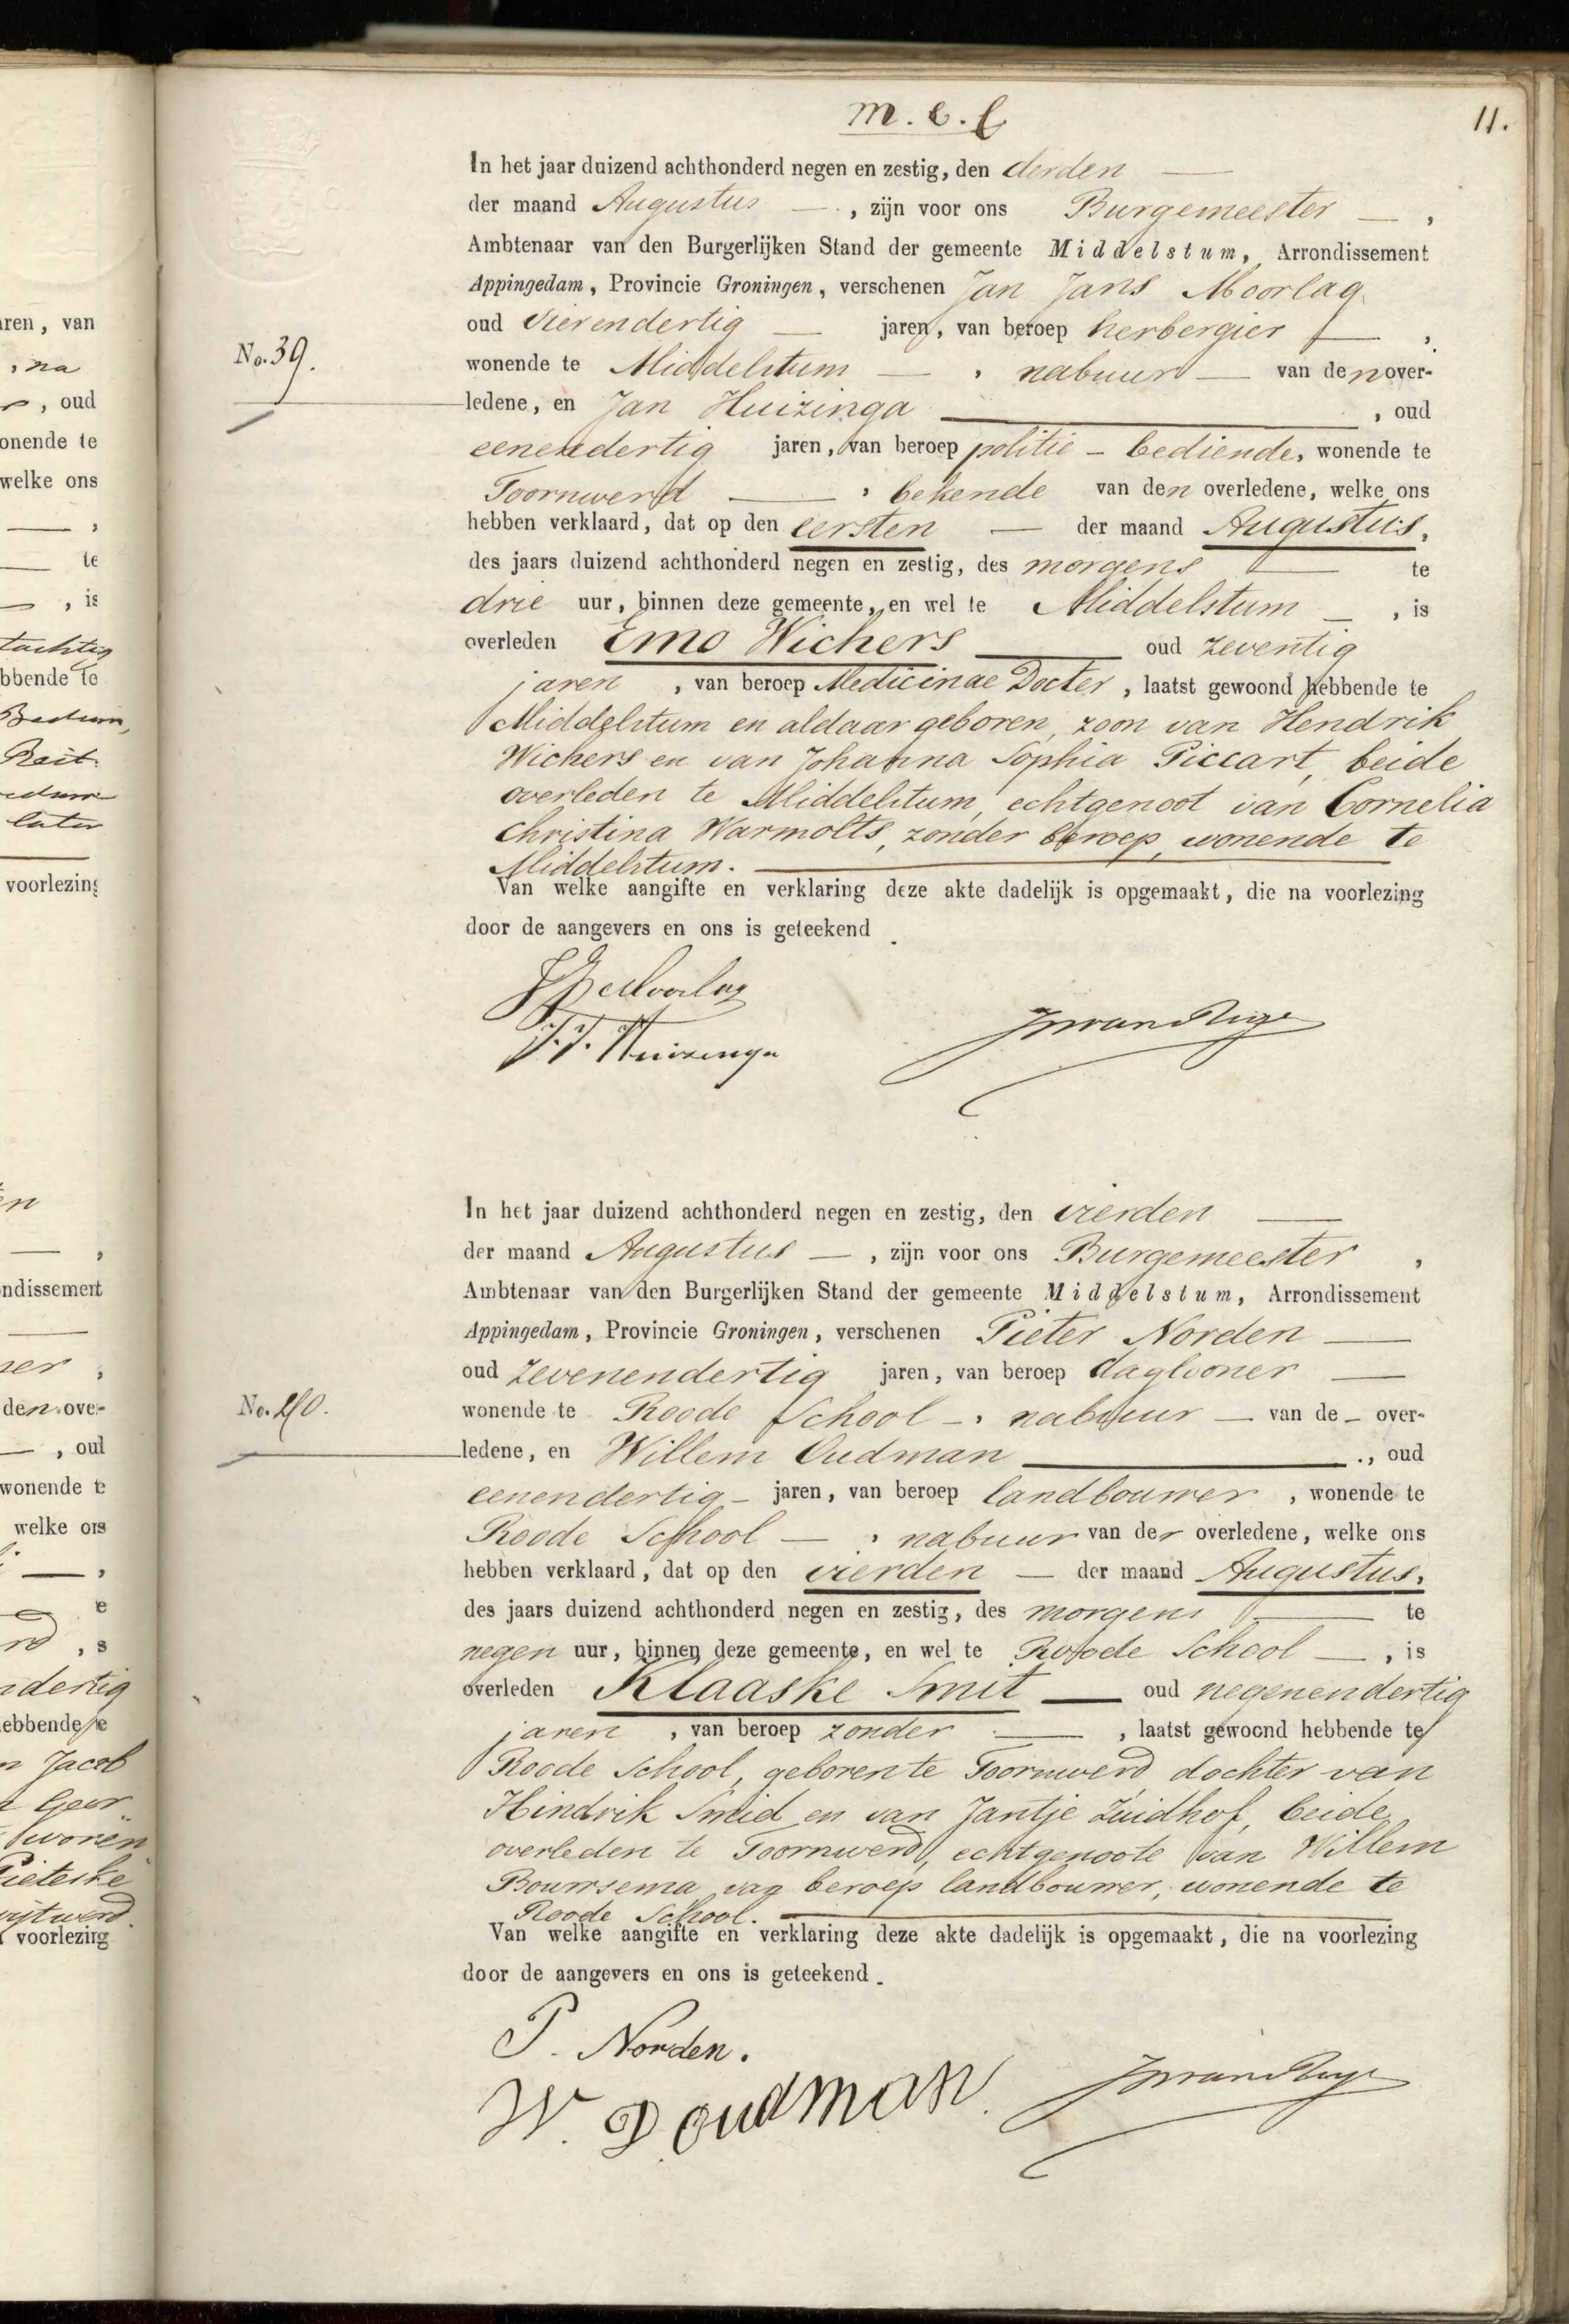 m. e. f
11.
In het jaar duizend achthonderd negen en zestig, den derden —
der maand Augustus —, zijn voor ons Burgemeester —,
Ambtenaar van den Burgerlijken Stand der gemeente Middelstum, Arrondissement
Appingedam, Provincie Groningen, verschenen Jan Jans Moorlag
oud vierendertig — jaren, van beroep herbergier —,
No. 39.
wonende te Middelstum —, nabuur — van den over-
ledene, en Jan Huizinga —, oud
eenendertig jaren, van beroep politie - bediende, wonende te
Toornwerd —, bekende van den overledene, welke ons
hebben verklaard, dat op den eersten — der maand Augustus,
des jaars duizend achthonderd negen en zestig, des morgens — te
drie uur, binnen deze gemeente, en wel te Middelstum —, is
overleden Emo Wichers — oud zeventig
jaren, van beroep Medicinae Docter, laatst gewoond hebbende te
Middelstum en aldaar geboren, zoon van Hendrik
Wichers en van Johanna Sophia Piccart, beide
overleden te Middelstum, echtgenoot van Cornelia
Christina Warmolts, zonder beroep, wonende te
Middelstum. —
Van welke aangifte en verklaring deze akte dadelijk is opgemaakt, die na voorlezing
door de aangevers en ons is geteekend.
Moorlag
J. J. Huizinga
In het jaar duizend achthonderd negen en zestig, den vierden —
der maand Augustus —, zijn voor ons Burgemeester,
Ambtenaar van den Burgerlijken Stand der gemeente Middelstum, Arrondissement
Appingedam, Provincie Groningen, verschenen Pieter Norden —
oud zevenendertig jaren, van beroep daglooner —
No. 40.
wonende te Roode School —, nabuur — van de - over-
ledene, en Willem Oudman —, oud
eenendertig - jaren, van beroep landbouwer, wonende te
Roode School —, nabuur van der overledene, welke ons
hebben verklaard, dat op den vierden — der maand Augustus,
des jaars duizend achthonderd negen en zestig, des morgens — te
negen uur, binnen deze gemeente, en wel te Roode School —, is
overleden Klaaske Smit — oud negenendertig
jaren, van beroep zonder —, laatst gewoond hebbende te
Roode School, geboren te Toornwerd, dochter van
Hindrik Smid en van Jantje Zuidhof, beide
overleden te Toornwerd, echtgenoote van Willem
Bouwsema van beroep landbouwer, wonende te
Roode School. —
Van welke aangifte en verklaring deze akte dadelijk is opgemaakt, die na voorlezing
door de aangevers en ons is geteekend.
P. Norden.
W. D. oudman.